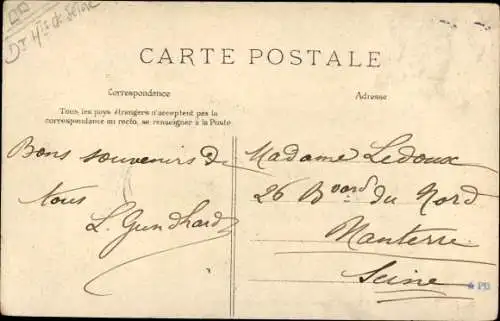 Dt Hte de Seine
CARTE POSTALE
Correspondance
Adresse
Tous les pays étrangers n'acceptent pas la
correspondance au recto, se renseigner à la Poste.
Bons souvenirs de
tous
L. Gundhard
Madame Ledoux
26 Board du Nord
Nanterre
Seine
★ PD